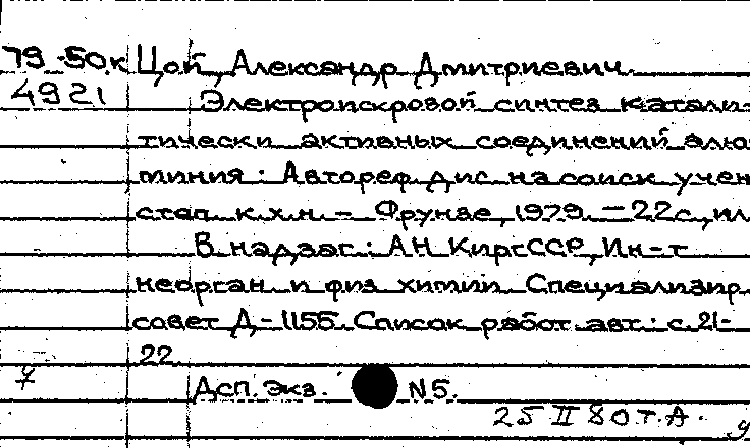 79-50к Цой, Александр Дмитриевич.
4921 Электроискровой синтез катали-
тически активных соединений алю-
миния: Автореф дис. на соиск учен
степ. к.х.н. - Фрунзе, 1979. - 22с, ил
В надзаг.: АН КиргССР, Ин-т
неорган и физ химии. Специализир
совет Д-1155. Список работ авт.: с.21-
22
7 Дсп. Экз. N5.
25 II 80 т.А.